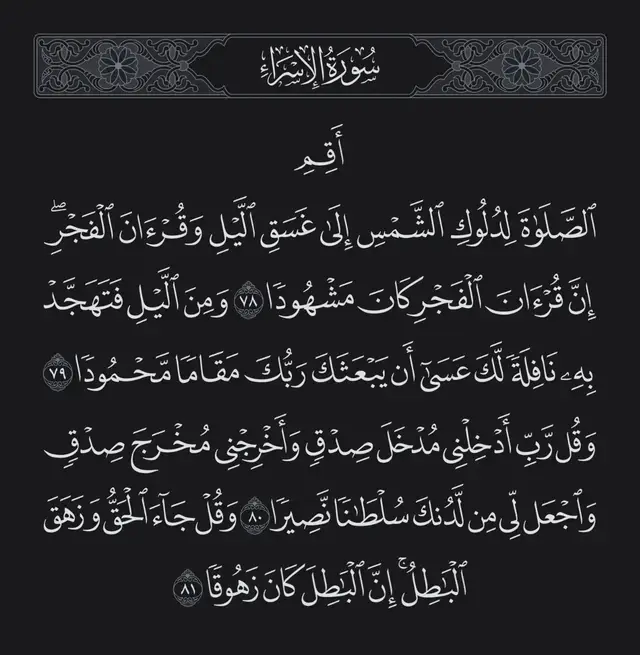 سُورَةُ الإِسْرَاءِ
أَقِمِ
ٱلصَّلَوٰةَ لِدُلُوكِ ٱلشَّمْسِ إِلَىٰ غَسَقِ ٱلَّيْلِ وَقُرْءَانَ ٱلْفَجْرِۖ
إِنَّ قُرْءَانَ ٱلْفَجْرِ كَانَ مَشْهُودٗا ٧٨ وَمِنَ ٱلَّيْلِ فَتَهَجَّدْ
بِهِۦ نَافِلَةٗ لَّكَ عَسَىٰٓ أَن يَبْعَثَكَ رَبُّكَ مَقَامٗا مَّحْمُودٗا ٧٩
وَقُل رَّبِّ أَدْخِلْنِي مُدْخَلَ صِدْقٖ وَأَخْرِجْنِي مُخْرَجَ صِدْقٖ
وَٱجْعَل لِّي مِن لَّدُنكَ سُلْطَٰنٗا نَّصِيرٗا ٨٠ وَقُلْ جَآءَ ٱلْحَقُّ وَزَهَقَ
ٱلْبَٰطِلُۚ إِنَّ ٱلْبَٰطِلَ كَانَ زَهُوقٗا ٨١